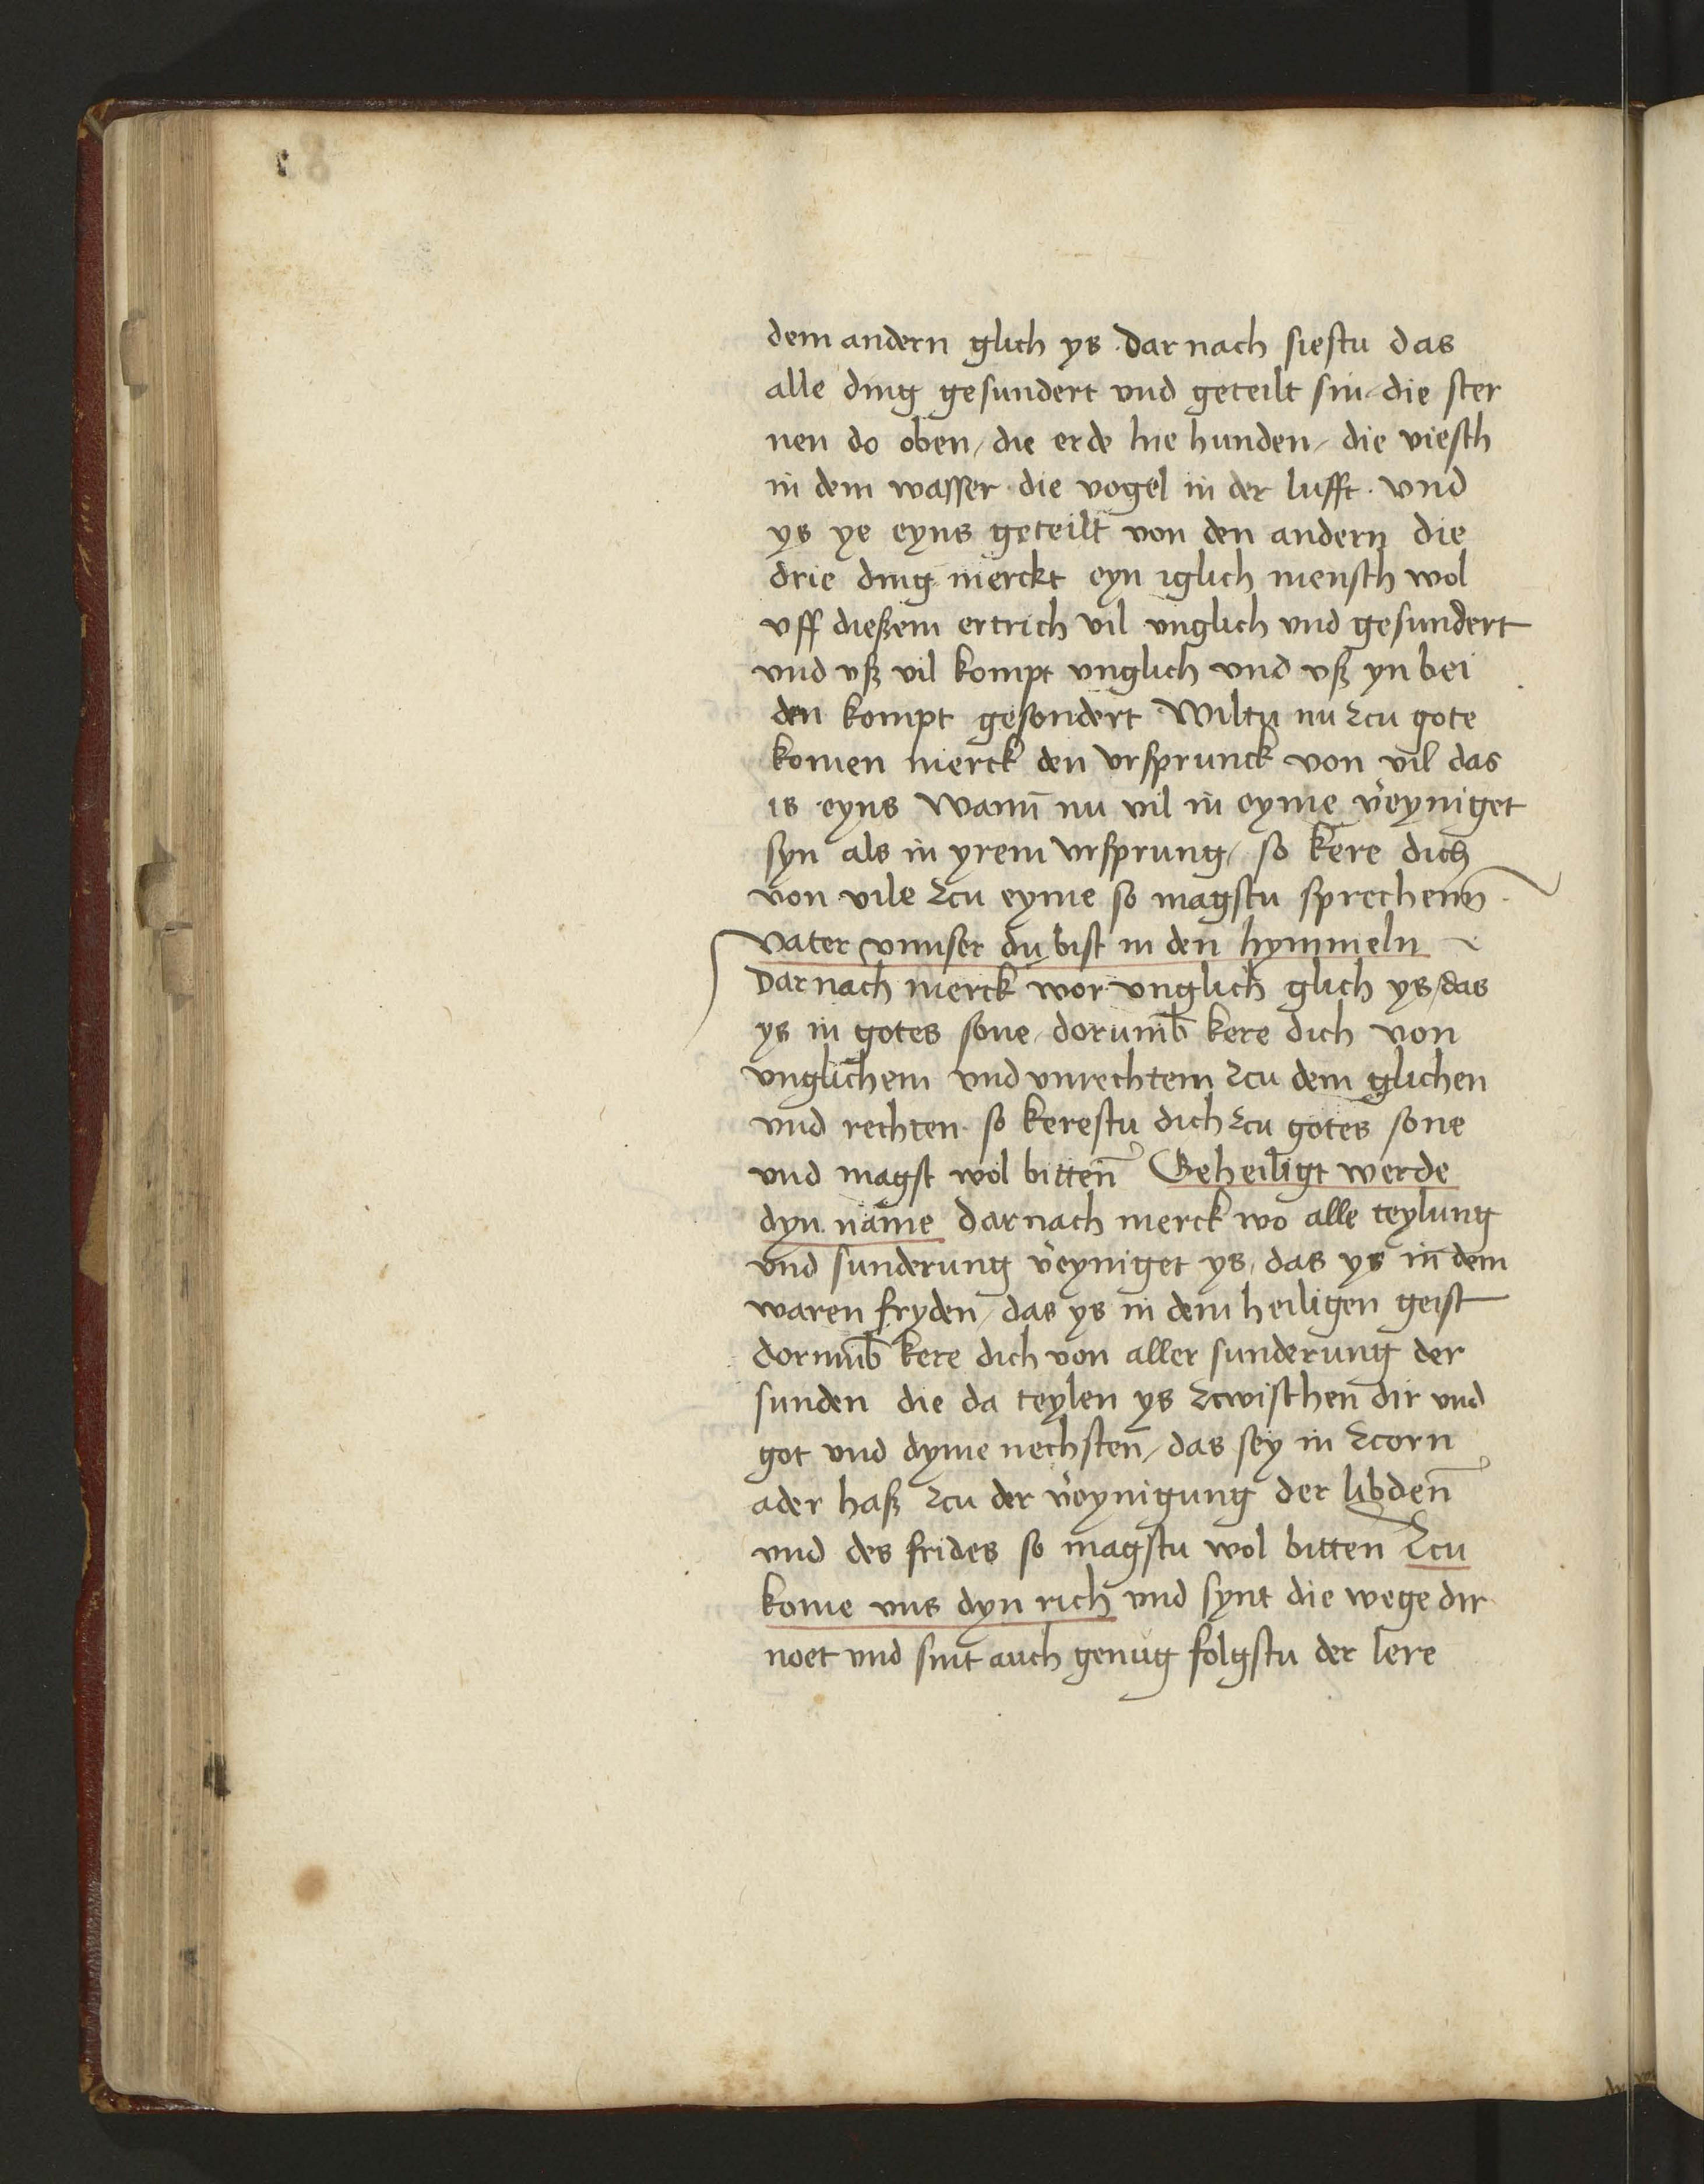 dem andern glich ys · Dar nach siestu das
alle ding gesundert vnd geteilt sin / die ster
nen do oben / die erde hie hunden / die viesch
in dem wasser · die vogel in der lufft · vnd
ys ye eyns geteilt von den andern die
drie ding merckt eyn iglich mensch wol
vff dießem ertrich vil vnglich vnd gesundert
vnd vß vil kompt vnglich vnd vß yn bei
den kompt gesondert · Wiltu nu zcu gote
komen merck den vrsprunck von vil das
is eyns Wann̄ nu vil in eyme v̉eyniget
syn als in yrem vrsprung / so kere dich
von vile zcu eyme so magstu sprechenn̄ ·
Vater vnnser du bist in den hymmeln
Dar nach merck wor vnglich glich ys / das
ys in gotes sone / dorumb̄ kere dich von
vnglichem vnd vnrechtem zcu dem glichen
vnd rechten · so kerestu dich zcu gotes sone
vnd magst wol bitten̄ Geheiligt werde
dyn name Dar nach merck wo alle teylung
vnd sunderung v̉eyniget ys / das ys in dem
waren fryden / das ys in dem heiligen geist
dorumb̄ kere dich von aller sunderung der
sunden die da teylen ys zcwischen dir vnd
got vnd dyme nechsten̄ / das sey in zcorn
ader haß zcu der v̉eynigung der libden̄
vnd des frides so magstu wol bitten Zcu
kome vns dyn rich vnd synt die wege dir
noet vnd sint auch genug folgstu der lere